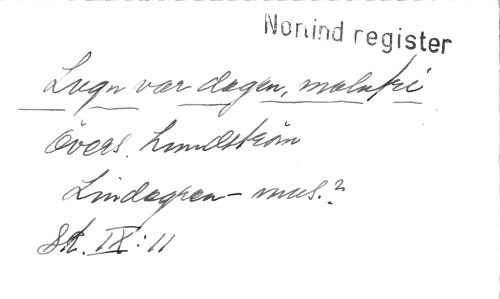 Nonind register
Lugn var dagen, molnfri
Övers. Lundström
Lindagren - mus.?
Sk. IX:11